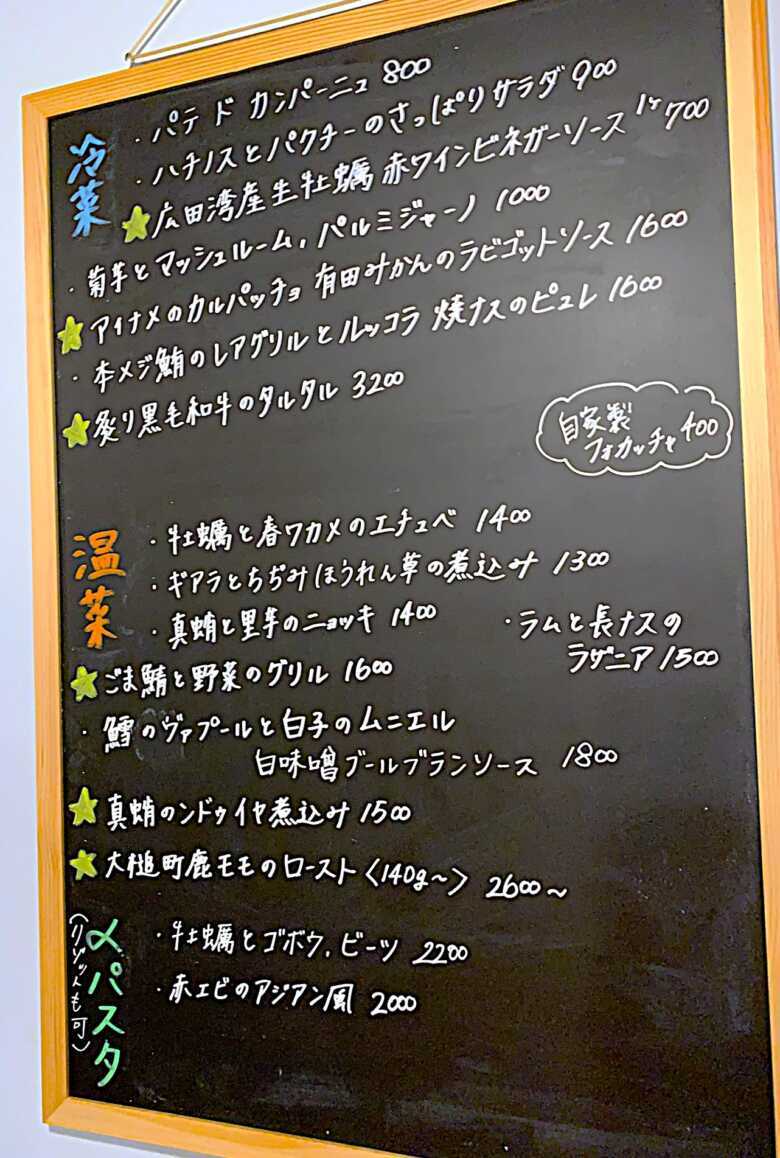 冷菜
・パテ ド カンパーニュ 800
・ハチノスとパクチーのさっぱりサラダ 900
★広田湾産生牡蠣 赤ワインビネガーソース 1ヶ700
・菊芋とマッシュルーム、パルミジャーノ 1000
★アイナメのカルパッチョ 有田みかんのラビゴットソース 1600
・本メジ鮪のレアグリルとルッコラ 焼ナスのピュレ 1600
★炙り黒毛和牛のタルタル 3200
自家製
フォカッチャ 400
温菜
・牡蠣と春ワカメのエチュベ 1400
・ギアラとちぢみほうれん草の煮込み 1300
・真蛸と里芋のニョッキ 1400
・ラムと長ナスの
ラザニア 1500
★ごま鯖と野菜のグリル 1600
・鱈のヴァプールと白子のムニエル
白味噌ブールブランソース 1800
★真蛸のンドゥイヤ煮込み 1500
★大槌町鹿モモのロースト〈140g〜〉 2600〜
〆パスタ
(リゾットも可)
・牡蠣とゴボウ、ビーツ 2200
・赤エビのアジアン風 2000